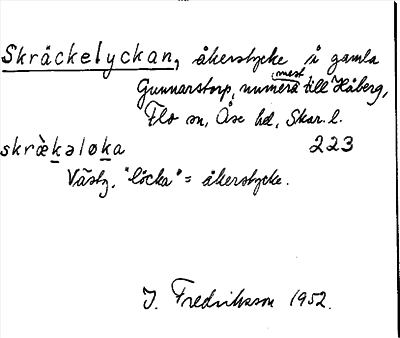 Skräckelyckan, åkerstycke i gamla
mest
Gunnarstorp, numera till Håberg,
Flo sn, Åse hd, Skar. l.
skræ̀kəløka 223
Västg. "löcka" = åkerstycke.
J. Fredriksson 1952.